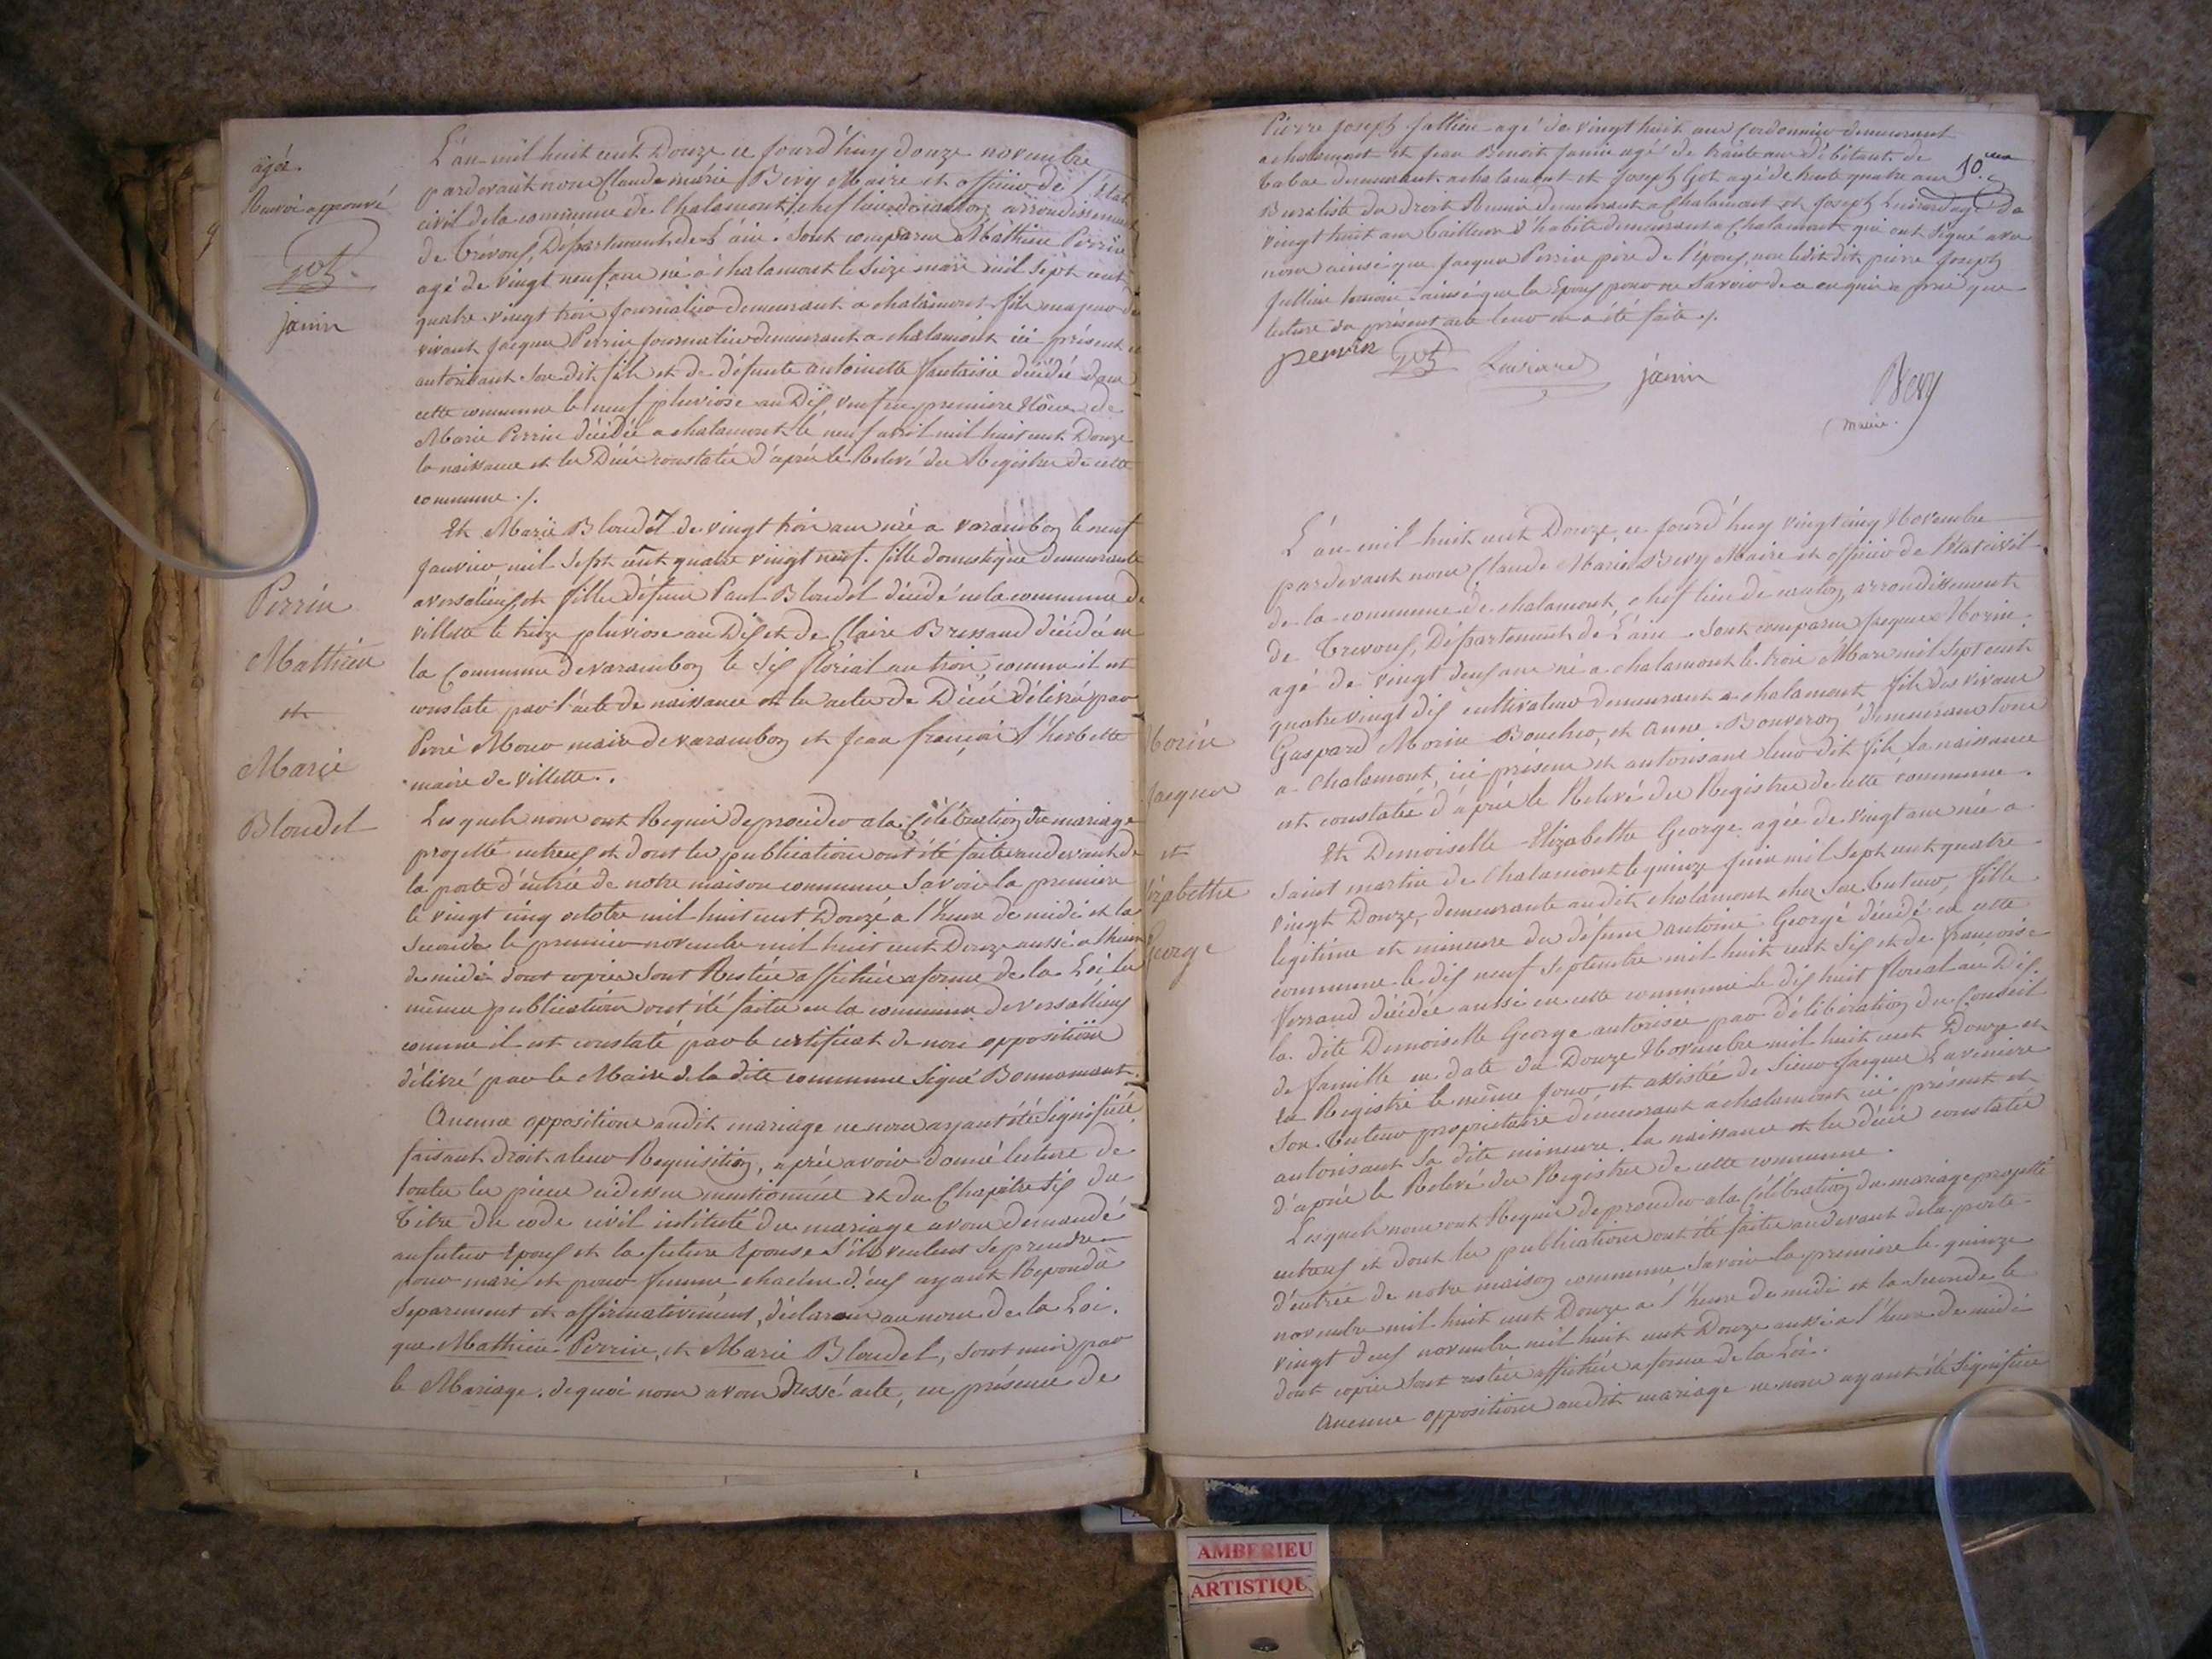 agée
Renvoi approuvé
janin
L'an mil huit cent Douze ce jourd'huy douze novembre
pardevant nous Claude marie Bevy Maire et officier de l'Etat
civil de la commune de Chalamont, chef lieu de canton, arrondissement
de Trevoux, Département de l'ain. Sont comparus Mathieu Perrin
agé de vingt neuf ans né a chalamont le Seize mars mil Sept cent
quatre vingt trois journalier demeurant a chalamont fils majeur de
vivant Jacques Perrin journalier demeurant a chalamont ici présent et
autorisant Son dit fils et de défunte antoinette décédée dans
cette commune le neuf pluviose an Dix, veuf en premiere Nôce de
Marie Perrin décédée a chalamont le neuf avril mil huit cent Douze
la naissance et les Décès constatés d'après le Relevé des Registres de cette
commune ./.
Et Marie Bloudel de vingt trois ans née a varambon le neuf
janvier mil Sept cent quatre vingt neuf. fille domestique demeurante
a versalieux, et fille défunt Paul Bloudel décédé en la commune de
villette le treize pluviose an Dix et de Claire Bressaud décédée en
la Commune de varambon le Six floréal an trois, comme il est
constaté par l'acte de naissance et les actes de Décès délivrés par
Perré maire de varambon et Jean françois l'herbette
maire de villette.
Perrin
Mathieu
et
Marie
Bloudel
Lesquels nous ont Requis de procéder a la Célébration du mariage
projetté entreux et dont les publications ont été faites audevant de
la porte d'entrée de notre maison commune Savoir la premiere
le vingt cinq octobre mil huit cent Douze a l'heure de midi et la
Seconde le premier novembre mil huit cent Douze aussi a l'heure
de midi dont copies Sont Restées affichées a forme de la Loi les
mêmes publications ont été faites en la commune de versallieux
comme il est constaté par le certificat de non opposition
délivré par le Maire de la dite commune Signé Bonnamant.
Aucune opposition audit mariage ne nous ayant été Signifiée
faisant droit a leur Requisition, après avoir donné lecture de
toutes les pieces cidessus mentionnées et du Chapitre Six du
Titre du code civil intitulé du mariage avons demandé
au futur Epoux et la future Epouse S'ils veulent Se prendre
pour mari et pour femme chacun d'eux ayant Repondû
Séparement et affirmativement, déclarons au nom de la Loi.
que Mathieu Perrin, et Marie Bloudel, sont unis par
le Mariage. de quoi nous avons dressé acte, en présence de
Pierre Joseph fallieu agé de vingt huit ans Cordonnier demeurant
a chalamont et Jean Benoit Janin agé de trente ans débitant de
tabac demeurant a chalamont et Joseph Got agé de trente quatre ans
10.me
Buraliste de droit Reunis demeurant a Chalamont et Joseph agé de
vingt huit ans tailleur d'habits demeurant a Chalamont qui ont Signé avec
nous ainsi que Jacques Perrin pere de l'époux, non ledit pierre Joseph
temoin ainsi que les Epoux pour ne Savoir de ce enquis après que
lecture du présent acte leur en a été faite ./.
perrin janin Bevy
maire.
L'an mil huit cent Douze, ce jourd'huy vingt cinq Novembre
pardevant nous Claude Marie Bevy Maire et officier de l'Etat civil
de la commune de chalamont, chef lieu de canton, arrondissement
de Trevoux, Département de l'ain. Sont comparus Jacques Morin
agé de vingt deux ans né a chalamont le trois Mars mil Sept cent
quatre vingt dix cultivateur demeurant a chalamont fils des vivans
Gaspard Morin Boucher, et Anne Bouveron demeurans tous
a Chalamont, ici présens et autorisans leur dit fils la naissance
est constatée d'après le Relevé des Registres de cette commune.
Morin
Jacques
et
Elizabethe
George
Et Demoiselle Elizabethe George agée de vingt ans née a
Saint martin de Chalamont le quinze Juin mil Sept cent quatre
vingt Douze, demeurante audit chalamont chez Son tuteur, fille
légitime et mineure du défunt antoine George décédé en cette
commune le dix neuf Septembre mil huit cent Six et de françoise
Verraud décédée aussi en cette commune le dix huit floréal an Dix
la dite Demoiselle George autorisée par Délibération du Conseil
de famille en date du Douze Novembre mil huit cent Douze et
Registré le même jour, et assistée de Sieur Jacques
Son tuteur propriétaire demeurant a chalamont ici présent et
autorisant Sa dite mineure. la naissance et les décès constatés
d'après le Relevé des Registres de cette commune.
Lesquels nous ont Requis de procéder a la Célébration du mariage projetté
entreux et dont les publications ont été faites audevant de la porte
d'entrée de notre maison commune Savoir la premiere le quinze
novembre mil huit cent Douze a l'heure de midi et la Seconde le
vingt deux novembre mil huit cent Douze aussi a l'heure de midi
dont copies Sont restées affichées a forme de la Loi.
Aucune opposition audit mariage ne nous ayant été Signifiée
AMBERIEU
ARTISTIQU